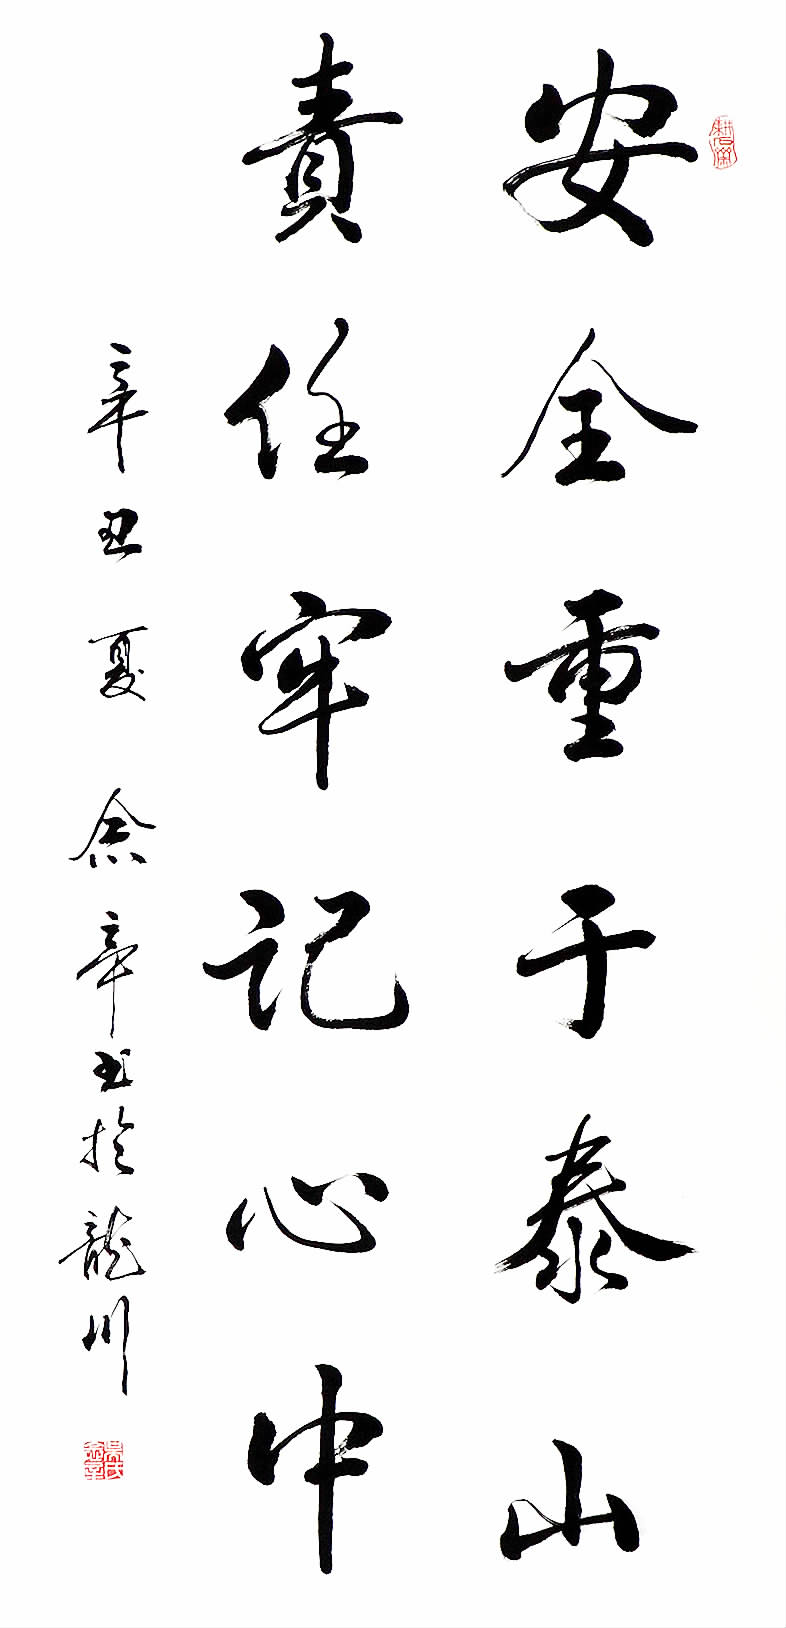 安全重于泰山
責任牢記心中
辛丑夏 余辛书於龍川